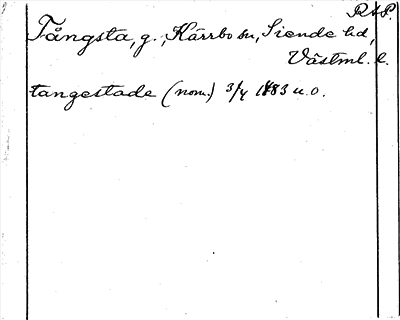 RAP.
Tångsta, g., Kärrbo sn, Siende hd,
Västml. l.
tangestade (nom.) 3/4 1483 u.o.